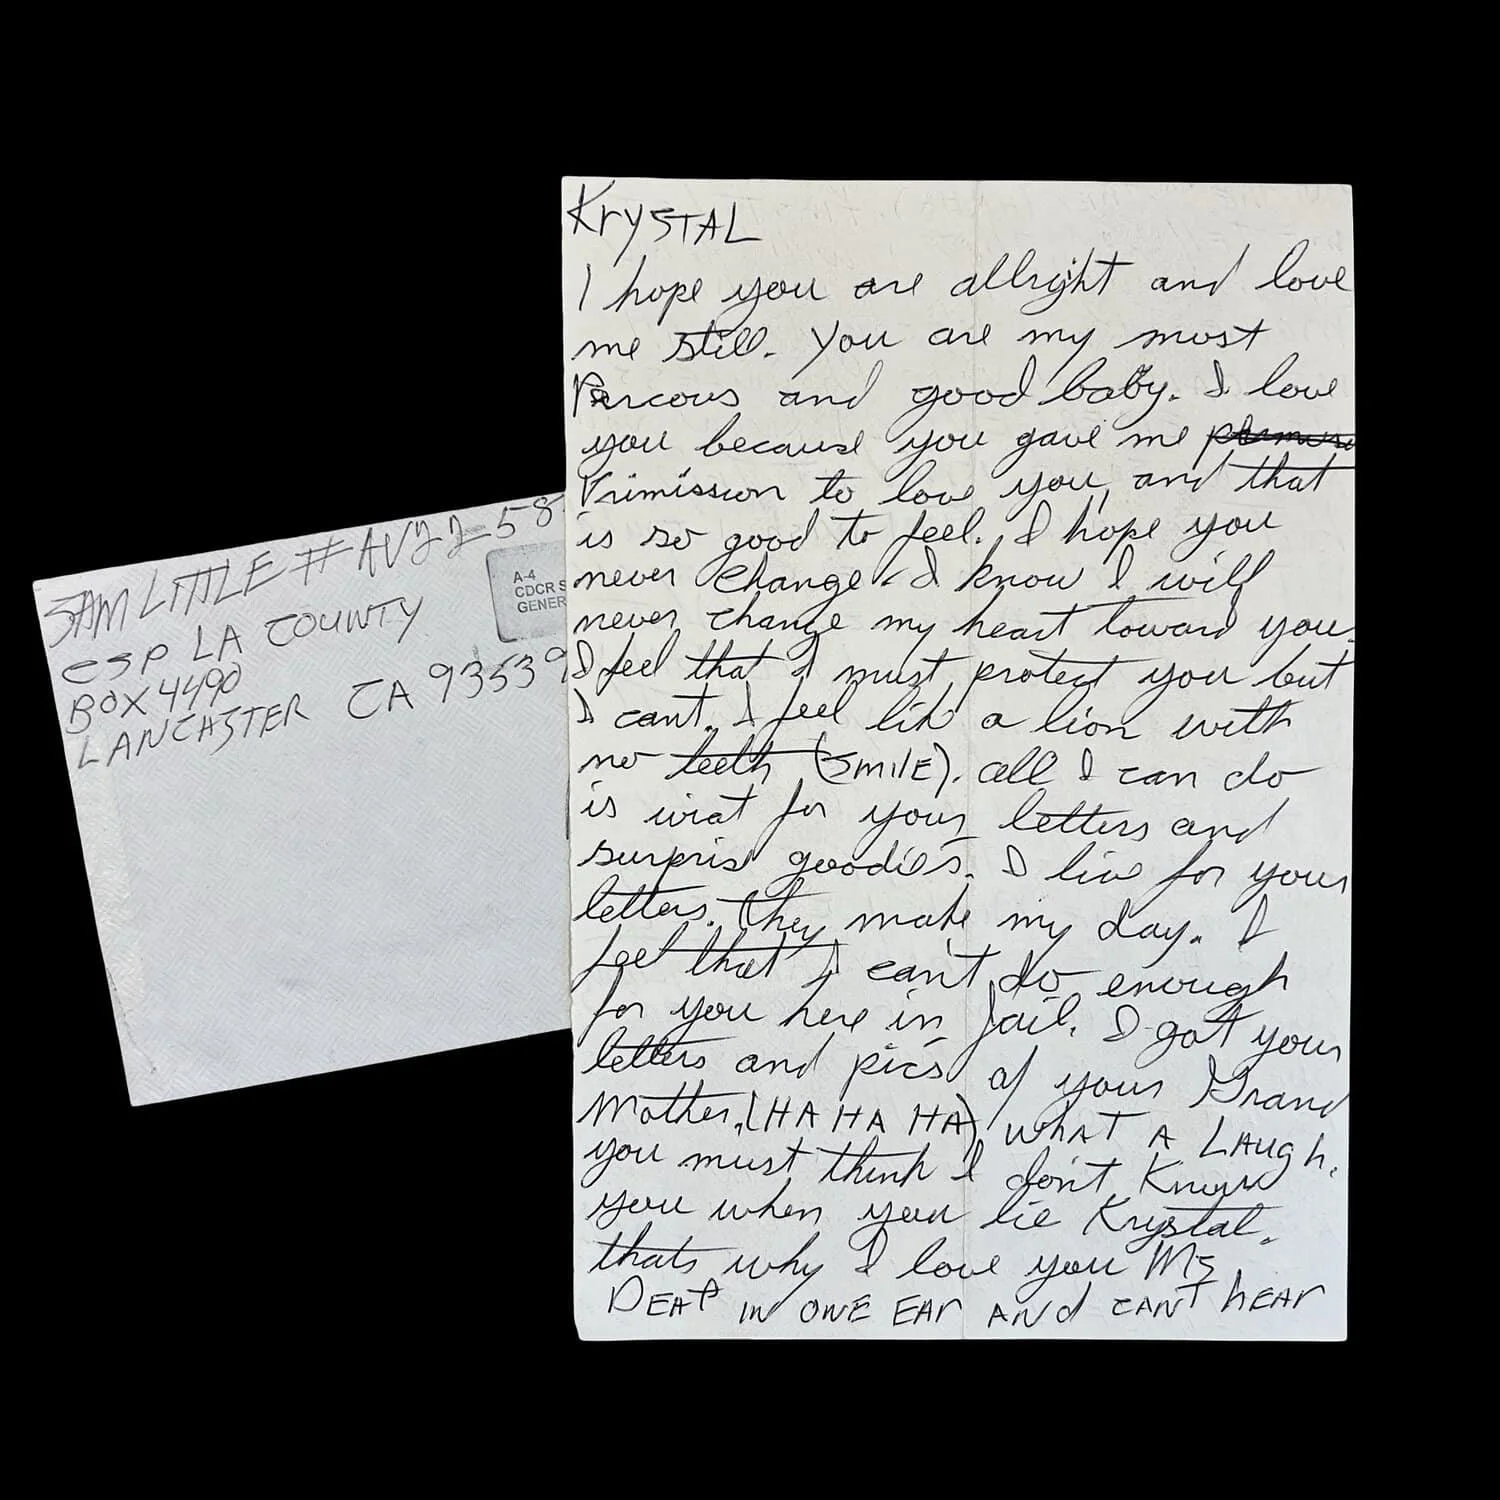 SAM LITTLE # AV2258
CSP LA COUNTY
BOX 4490
LANCASTER CA 93539
A-4
CDCR S
GENER
Krystal
I hope you are allright and love
me still. You are my most
Parcous and good baby. I love
you because you gave me
Primission to love you, and that
is so good to feel. I hope you
never change. I know I will
never change my heart toward you.
I feel that I must protect you but
I cant. I feel lik a lion with
no teeth (SMILE). all I can do
is wiat for your letters and
surpris goodies. I live for your
letters. they make my day. I
feel that I can't do enough
for you here in Jail. I got your
letters and pics of your Grand
Mother. (HA HA HA) WHAT A LAUGh.
you must think I don't Know
you when you lie Krystal.
thats why I love you Ms
DEAF IN ONE EAr ANd CANT hEAr